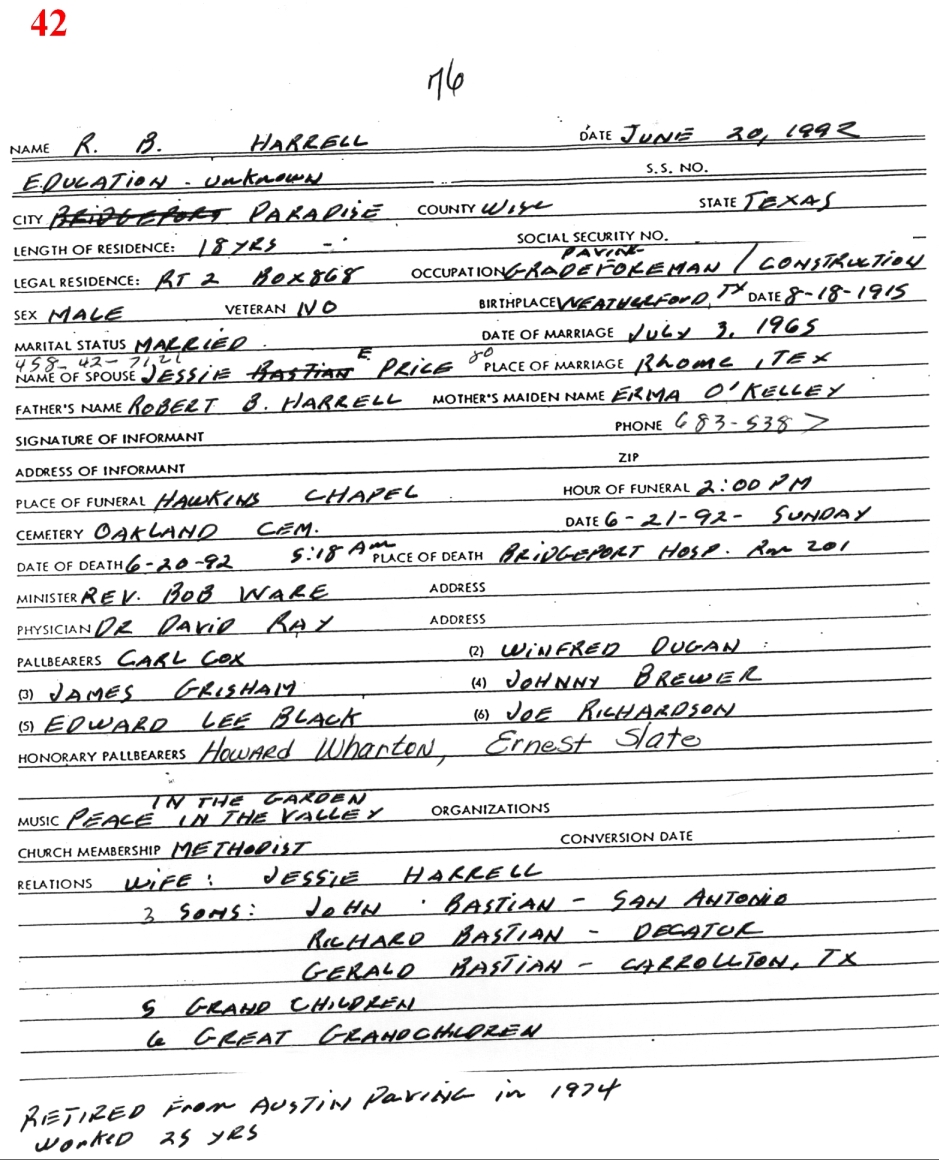 42
76
NAME R. B. HARRELL DATE JUNE 20, 1992
EDUCATION - UNKNOWN S.S. NO.
CITY BRIDGEPORT PARADISE COUNTY WISE STATE TEXAS
LENGTH OF RESIDENCE: 18 YRS - SOCIAL SECURITY NO.
PAVING
LEGAL RESIDENCE: RT 2 BOX 868 OCCUPATION GRADE FOREMAN / CONSTRUCTION
SEX MALE VETERAN NO BIRTHPLACE WEATHERFORD, TX DATE 8-18-1915
MARITAL STATUS MARRIED DATE OF MARRIAGE JULY 3, 1965
458-42-7121 E.
NAME OF SPOUSE JESSIE BASTIAN PRICE 80 PLACE OF MARRIAGE Rhome, TEX
FATHER'S NAME ROBERT B. HARRELL MOTHER'S MAIDEN NAME ERMA O'KELLEY
SIGNATURE OF INFORMANT PHONE 683-5387
ADDRESS OF INFORMANT ZIP
PLACE OF FUNERAL HAWKINS CHAPEL HOUR OF FUNERAL 2:00 PM
CEMETERY OAKLAND CEM. DATE 6-21-92- SUNDAY
DATE OF DEATH 6-20-92 5:18 Am PLACE OF DEATH BRIDGEPORT HOSP. Rm 201
MINISTER REV. BOB WARE ADDRESS
PHYSICIAN DR DAVID RAY ADDRESS
PALLBEARERS CARL COX (2) WINFRED DUGAN
(3) JAMES GRISHAM (4) JOHNNY BREWER
(5) EDWARD LEE BLACK (6) JOE RICHARDSON
HONORARY PALLBEARERS Howard Wharton, Ernest Slate
IN THE GARDEN
MUSIC PEACE IN THE VALLEY ORGANIZATIONS
CHURCH MEMBERSHIP METHODIST CONVERSION DATE
RELATIONS WIFE: JESSIE HARRELL
3 SONS: JOHN BASTIAN - SAN ANTONIO
RICHARD BASTIAN - DECATUR
GERALD BASTIAN - CARROLLTON, TX
5 GRAND CHILDREN
6 GREAT GRANDCHILDREN
RETIRED From AUSTIN PAVING in 1974
WORKED 25 YRS